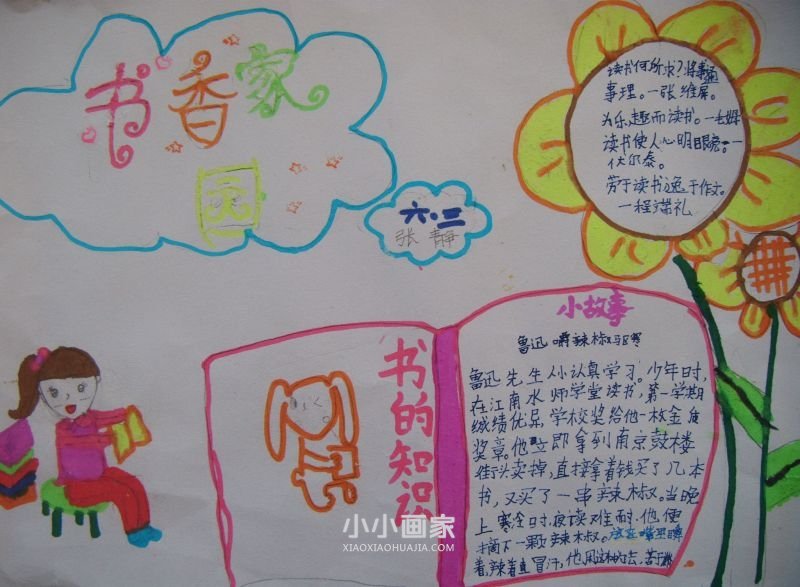 书香家
园
六·三
张静
读书何所求?将事通
事理。一张维屏。
为乐趣而读书。一毛姆
读书使人心明眼亮。一
伏尔泰。
劳于读书逸于作文。
一程端礼
书的知识
小故事
鲁迅嚼辣椒驱寒
鲁迅先生从小认真学习。少年时,
在江南水师学堂读书,第一学期
成绩优异,学校奖给他一枚金质
奖章。他立即拿到南京鼓楼
街头卖掉,直接拿着钱买了几本
书,又买了一串辣椒。当晚
上寒冷时,夜读难耐,他便
摘下一颗辣椒。
着,辣着直冒汗,他用这种办法,
小小画家
XIAOXIAOHUAJIA.COM